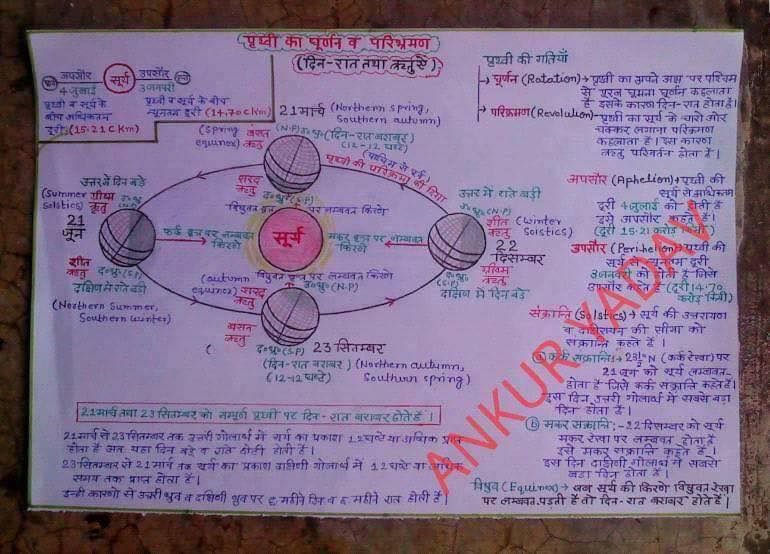 पृथ्वी का घूर्णन व परिभ्रमण
(दिन-रात तथा ऋतुऐं)
अपसौर सूर्य उपसौर
4 जुलाई 3 जनवरी
पृथ्वी व सूर्य के बीच अधिकतम दूरी (15.21 C Km)
पृथ्वी व सूर्य के बीच न्यूनतम दूरी (14.70 C Km)
21 मार्च (Northern spring, Southern autumn)
(Spring equinox) बसंत ऋतु
(N.P) उ०ध्रु० (दिन-रात बराबर)
(12-12 घण्टे)
पश्चिम से पूर्व
पृथ्वी की परिक्रमा की दिशा
शरद ऋतु
द०ध्रु० (S.P)
विषुवत वृत पर लम्बवत किरणें
उत्तर में दिन बड़े
(Summer Solstics) ग्रीष्म ऋतु
उ०ध्रु० (N.P)
21 जून
शीत ऋतु
द०ध्रु० (S.P)
दक्षिण में रातें बड़ी
(Northern Summer, Southern winter)
कर्क वृत पर लम्बवत किरणें
सूर्य
मकर वृत पर लम्बवत किरणें
उत्तर में रातें बड़ी
उ०ध्रु० (N.P)
शीत ऋतु (Winter Solstics)
22 दिसम्बर
ग्रीष्म ऋतु
द०ध्रु० (S.P)
दक्षिण में दिन बड़े
(autumn equinox) विषुवत वृत पर लम्बवत किरणें
शरद ऋतु उ०ध्रु० (N.P)
बसन्त ऋतु
द०ध्रु० (S.P) 23 सितम्बर
(दिन-रात बराबर) (Northern autumn, Southurn spring)
(12-12 घण्टे)
पृथ्वी की गतियाँ
घूर्णन (Rotation) → पृथ्वी का अपने अक्ष पर पश्चिम
से पूरब घूमना घूर्णन कहलाता
है इसके कारण दिन-रात होता है।
परिक्रमण (Revolution) → पृथ्वी का सूर्य के चारो ओर
चक्कर लगाना परिक्रमण
कहलाता है। इस कारण
ऋतु परिवर्तन होता है।
अपसौर (Aphelion) → पृथ्वी की
सूर्य से अधिकतम
दूरी 4 जुलाई को होती है
इसे अपसौर कहते हैं।
(दूरी 15.21 करोड़ किमी)
उपसौर (Perihelion) → पृथ्वी की
सूर्य से न्यूनतम दूरी
3 जनवरी को होती है जिसे
उपसौर कहते हैं (दूरी 14.70
करोड़ किमी)
संक्रान्ति (Solstics) → सूर्य की उत्तरायण
व दक्षिणायन की सीमा को
संक्रान्ति कहते हैं।
(a) कर्क संक्रान्ति :→ 23½° N (कर्क रेखा) पर
21 जून को सूर्य लम्बवत
होता है जिसे कर्क संक्रान्ति कहते हैं।
इस दिन उत्तरी गोलार्ध में सबसे बड़ा
दिन होता है।
(b) मकर संक्रान्ति :- 22 दिसम्बर को सूर्य
मकर रेखा पर लम्बवत होता है
इसे मकर संक्रान्ति कहते हैं।
इस दिन दक्षिणी गोलार्ध में सबसे
बड़ा दिन होता है।
विषुव (Equinox) → जब सूर्य की किरणें विषुवत रेखा
पर लम्बवत पड़ती हैं तो दिन-रात बराबर होते हैं।
21 मार्च तथा 23 सितम्बर को सम्पूर्ण पृथ्वी पर दिन-रात बराबर होते हैं।
21 मार्च से 23 सितम्बर तक उत्तरी गोलार्ध में सूर्य का प्रकाश 12 घण्टे या अधिक प्राप्त
होता है अतः यहां दिन बड़े व रातें छोटी होती हैं।
23 सितम्बर से 21 मार्च तक सूर्य का प्रकाश दक्षिणी गोलार्ध में 12 घण्टे या अधिक
समय तक प्राप्त होता है।
इन्हीं कारणों से उत्तरी ध्रुव व दक्षिणी ध्रुव पर 6 महीने दिन व 6 महीने रात होती है।
ANKUR YADAV